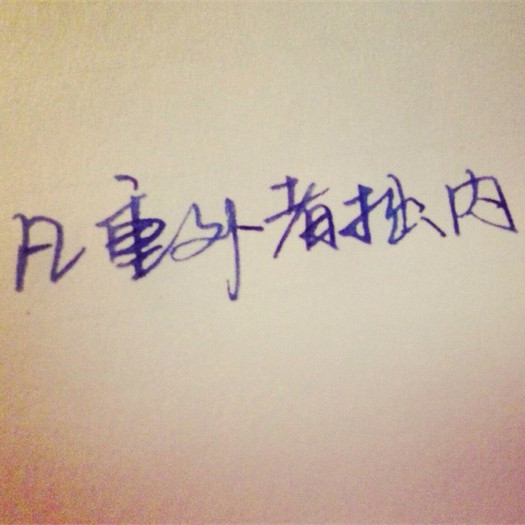 凡重外者拙内